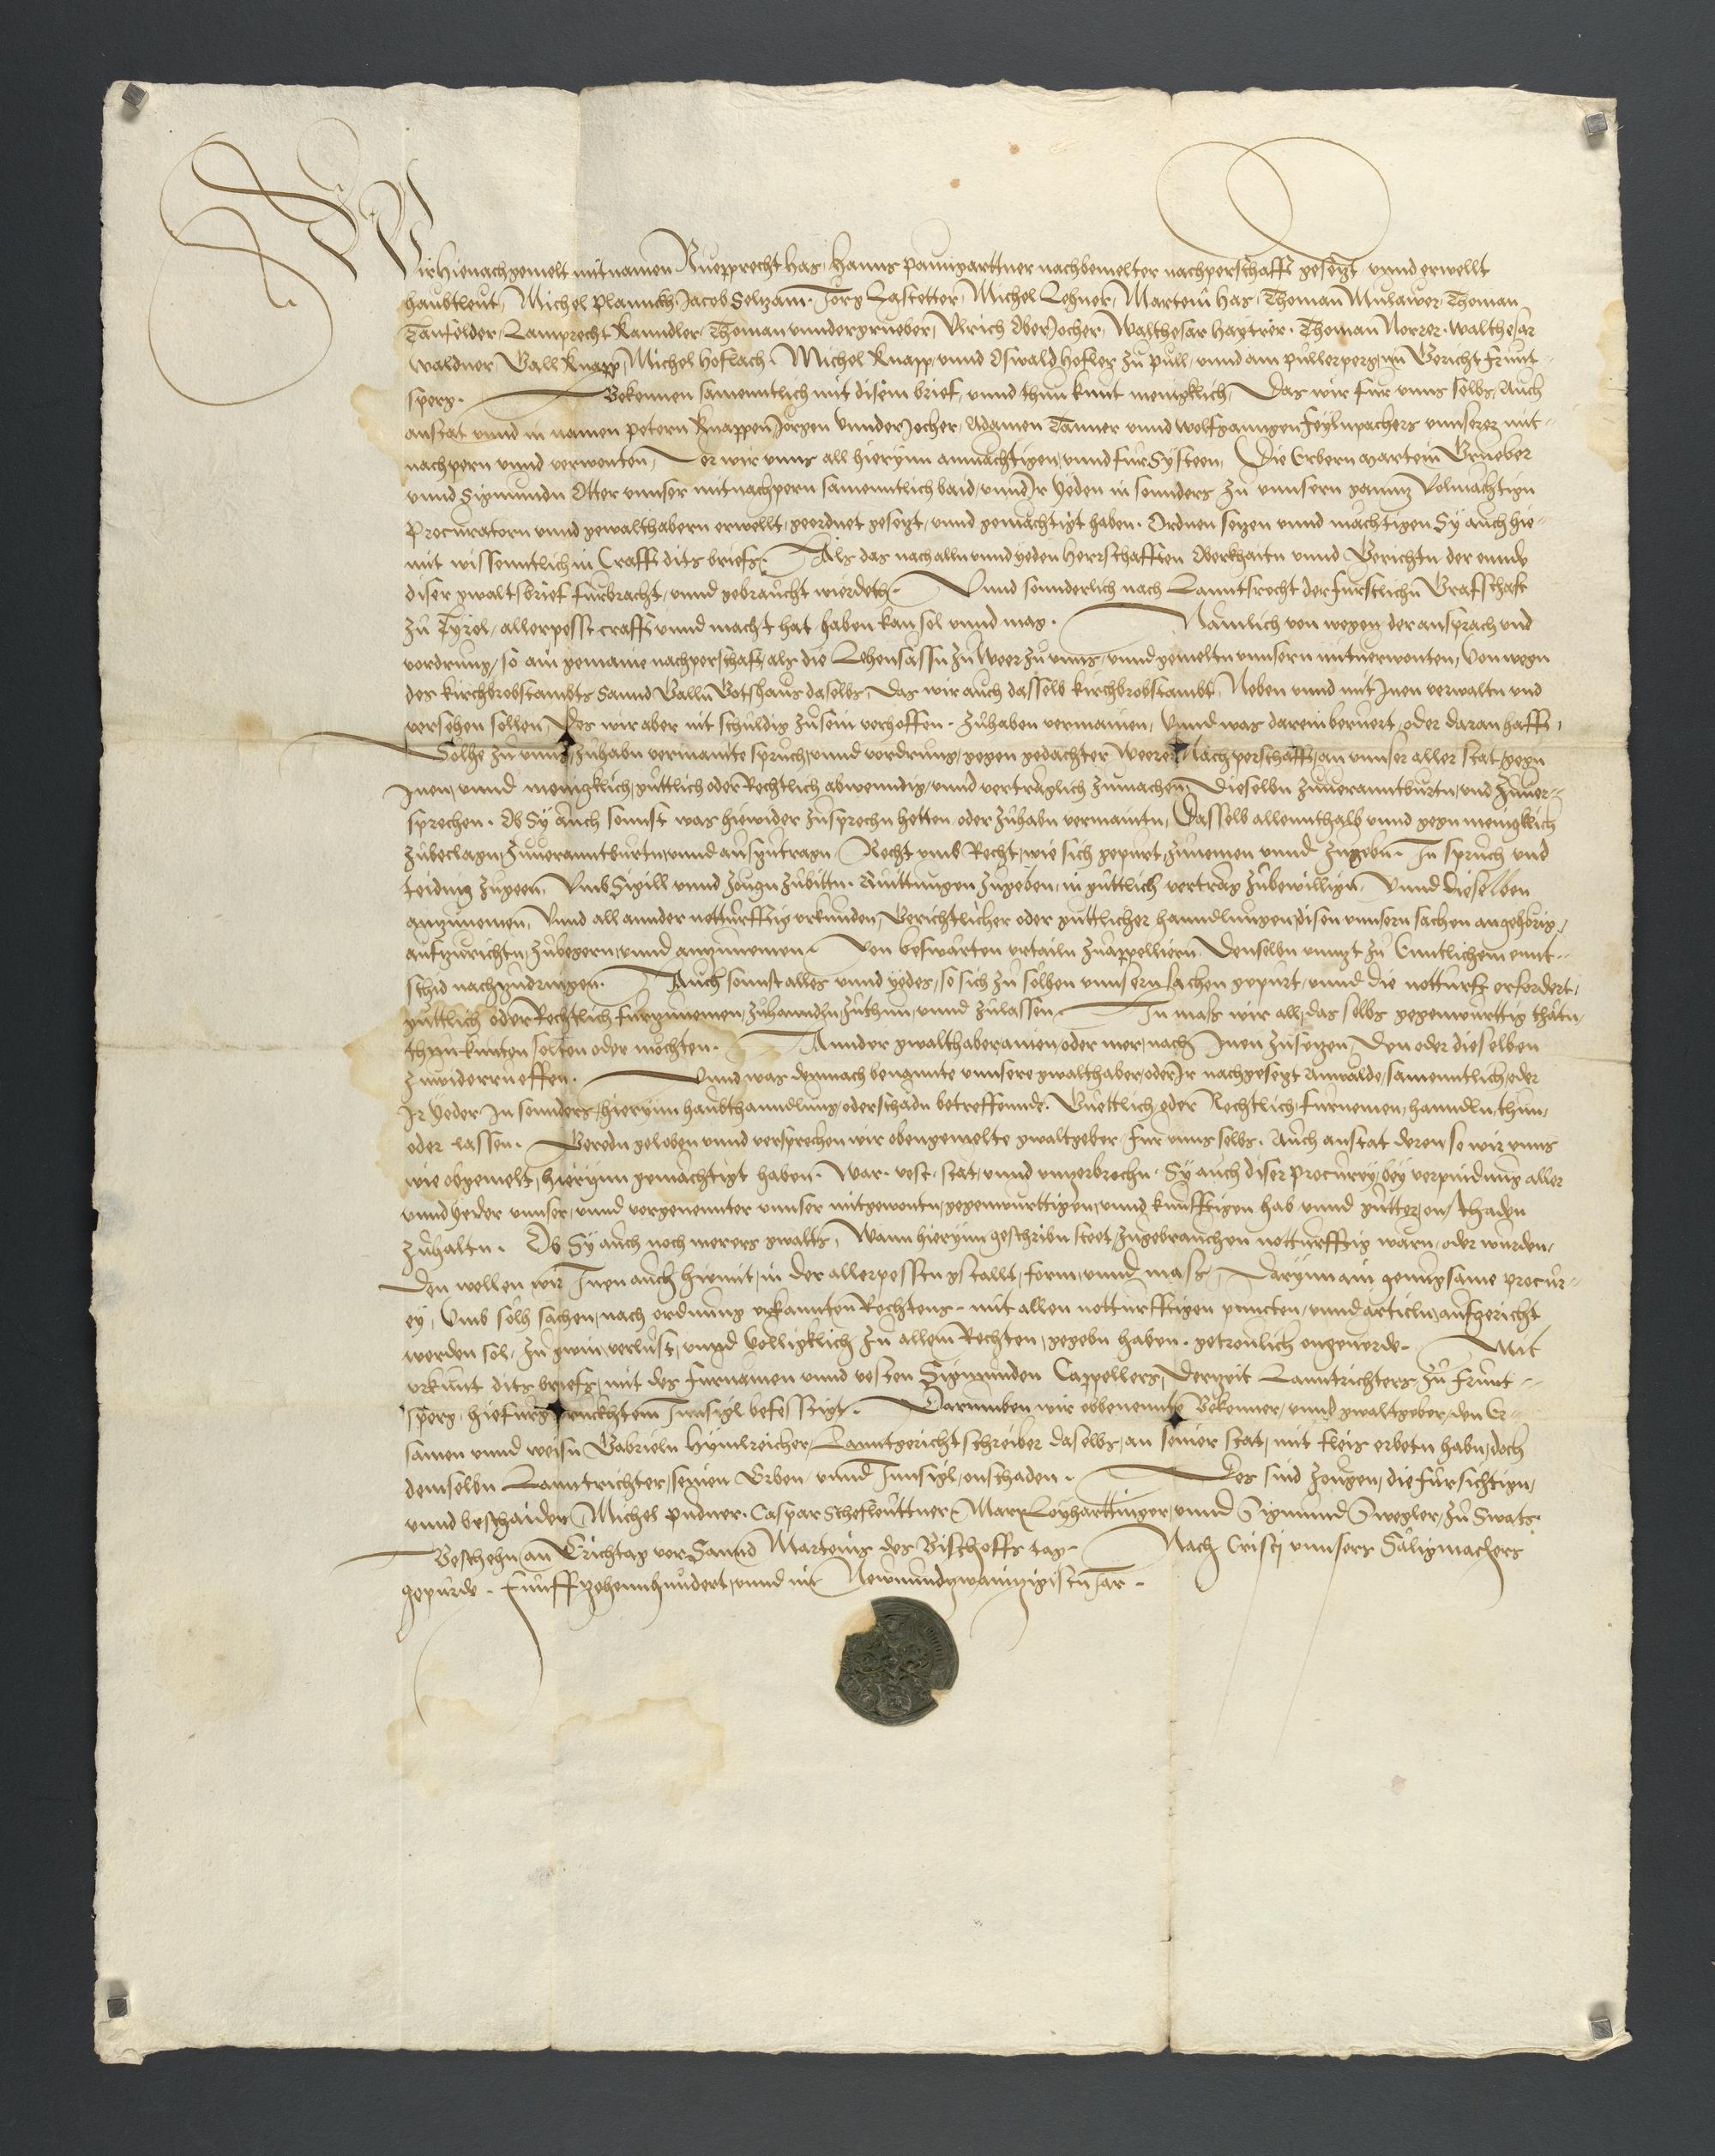 Wir Hienachgemelt mit namen Ruepprecht has, Hanns Paumgarttner nachbemelter nachperschafft gesetzt vnnd erwellt
haubtleut, Michel Plannckh Jacob Selzam, Jorg Lastetter, Michel Lehner, Martein has, Thoman Mulawer, Thoman
Tanfelder, Lamprecht Kanndler, Thoman vnndergrueber, Vlrich Oberjocher, Walthesar haytrer, Thoman Norrer, walthesar
Waldner Gall Knapp, Michel hoflach, Michel Knapp, vnnd Oswald hofler zu pull, vnnd am pullerperg, im Gericht Frunt-
sperg. Bekennen samenntlich mit disem brief, vnnd thun kunt menigklich, Das wir fur vnns selbs, Auch
anstat vnnd in namen Petern Knappen Jorgen vnnderjocher, Adamen Tanner vnnd wolfganngen Feylnpachers vnnserer mit-
nachpern vnnd verwonten, der wir vnns all hierynn anmachtigen, vnnd fur Sy steen, Die Erbern Martein Grueber
vnnd Sigmundn Otter vnnser mitnachpern samenntlich baid, vnnd Jr Yeden in sonnders zu vnnsern ganntz Volmachtign
Procuratorn vnnd gewalthabern erwellt, geordnet gesetzt, vnnd gemachtigt haben. Ordnen setzen vnnd machtigen Sy auch hie-
mit wissenntlich in Crafft dits briefs. Als das nach alln vnnd yeden herrschafften Oberkhaitn vnnd Gerichtn der ennde
diser gwaltsbrief furbracht, vnnd gebraucht wierdeth. Vnnd sonnderlich nach Lanntsrecht der furstlichn Grafschaft
zu Tyrol, allerpesst crafft vnnd macht hat, haben kan sol vnnd mag. Namlich von wegen der ansprach vnd
vordrung, so ain gemaine nachperschaft, als die Lehensassn zu Weer zu vnns, vnnd gemeltn vnnsern mituerwonten, Von wegn
des kirchbrobstambts Sannd Galln Gotshaus daselbs, Das wir auch dasselb kirchbrobstambt, Neben vnnd mit Jnen verwaltn vnd
versehen sollen, Des wir aber nit schuldig zu sein verhoffen. zuhaben vermainen, Vnnd was darein beruert, oder daran hafft,
Solhe zu vnns, zuhabn vermainte spruch, vnnd vordrung, gegen gedachter Weerer Nachperschafft, an vnnser aller stat, gegn
Jnen, vnnd menigklich, guttlich oder Rechtlich abwenndig, vnnd vertraglich zumachen, Dieselbn zuueranntburtn, vnd zuuer-
sprechen. Ob Sy auch sonnst was hiewider zusprechn hetten, oder zuhabn vermaintn, Dasselb allennthalb vnnd gegn menigklich
zubeclagn, zuueranntburtn, vnnd auszutragn, Recht vmb Recht, wie sich gepurt, zunemen vnnd zugebn. Jn spruch vnd
teiding zugeen, Vmb Sigill vnnd zeugn zubittn. Quittungen zugeben, in guttlich vertrag zubewilligen, Vnnd dieselben
anzunemen, Vnnd all annder notturfftig vrkunden, Gerichtlicher oder guttlicher hanndlungen, disen vnnsern sachen angehorig,
aufzurichtn, zubegern, vnnd anzunemen. Von beswarten vrtailn zuappelliern, Denselbn vnngt zu Enntlichem ennt-
schid nachzudringen. Auch sonnst alles vnnd yedes, so sich zu solhen vnnsern sachen gepurt, vnnd die notturft erfordert,
guttlich oder Rechtlich furzunemen, zuhanndln, zuthun, vnnd zulassen. Jn mass wir all, das selbs gegenwurttig thatn,
thun kunten solten oder mochten. Annder gwalthaber ainen, oder mer, nach Jnen zusetzen, Den oder dieselben
zuwiderrueffen. Vnnd was demnach benannte vnnsere gwalthaber, oder Jr nachgesetzt Anwalde, samenntlich, oder
Jr Yeder Jn sonnders, hierynn haubthanndlung, oder schadn betreffennde. Guettlich, oder Rechtlich, furnemen, hanndln, thun,
oder lassen. Geredn geloben vnnd versprechen wir obengemelte gwaltgeber, fur vnns selbs, Auch anstat deren, so wir vnns
wie obgemelt, hierynn gemachtigt haben. War. vesst. stat, vnnd vnzerbrochn. Sy auch diser procurey, bey verpindung aller
vnnd yeder vnnser, vnnd vorgenennter vnnser mitgewontn, gegenwurttigen, vnnd kunfftigen hab vnnd gutter, on schaden
zuhaltn. Ob Sy auch noch merers gwalts, Wann hierynn geschribn steet, zugebrauchen notturfftig warn, oder wurden,
Den wellen wir Jnen auch hiemit, in der allerpessten gstallt, form, vnnd mass, Darynn ain genugsame procur-
ey, Vmb solh sachen, nach ordnung erkannten Rechtens, mit allen notturfftigen puncten, vnnd articln, aufgericht
werden sol, zu gwin, verlusst, vnnd volligklich zu allem Rechten, gegebn haben. getreulich ongeuerde. Mit
vrkunt dits briefs, mit des furnamen vnnd vesten Sigmunden Cappellers, Derzeit Lanntrichters zu Frunt-
sperg, hiefurgetruckhtem Jnnsigl befesstigt. Darumben wir obbenennte Bekenner, vnnd gwaltgeber, den Er-
samen vnnd weisn Gabrieln Hymlreicher, Lanntgerichtschreiber daselbs, an seiner stat, mit fleis erbetn habn, doch
demselbn Lanntrichter, seinen Erben, vnnd Jnnsigl, onschaden. Des sind zeugen, die fursichtign,
vnnd beschaiden, Michel Pudner, Caspar Schefleuttner, Marx Leyharttinger, vnnd Sigmund Swegler, zu Swats.
Beschehn, an Erichtag vor Sannd Marteins des Bischoffs tag. Nach Cristj vnnsers Saligmachers
gepurde. Funffzehennhundert, vnnd im Newnundzwainzigisten Jar.